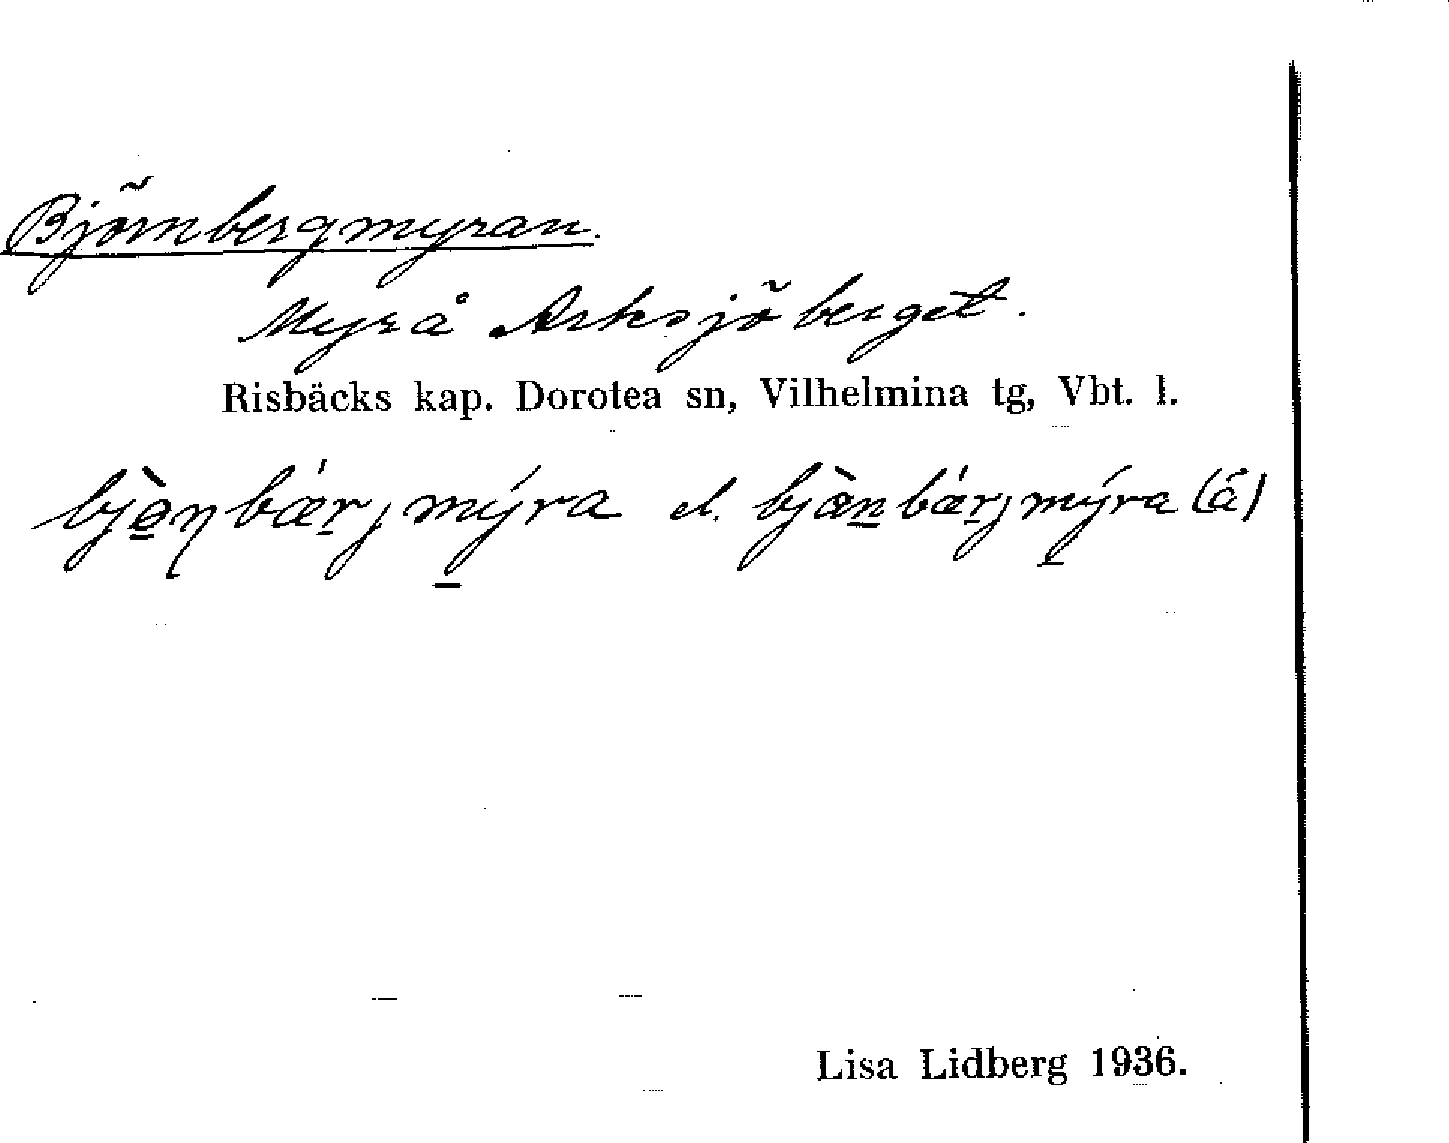 Björnbergmyran.
Myr å Arksjöberget.
Risbäcks kap. Dorotea sn, Vilhelmina tg, Vbt. l.
bjə̀ṇbær̲jmýra el. bjæ̀n̲bær̲jmýra (á)
Lisa Lidberg 1936.